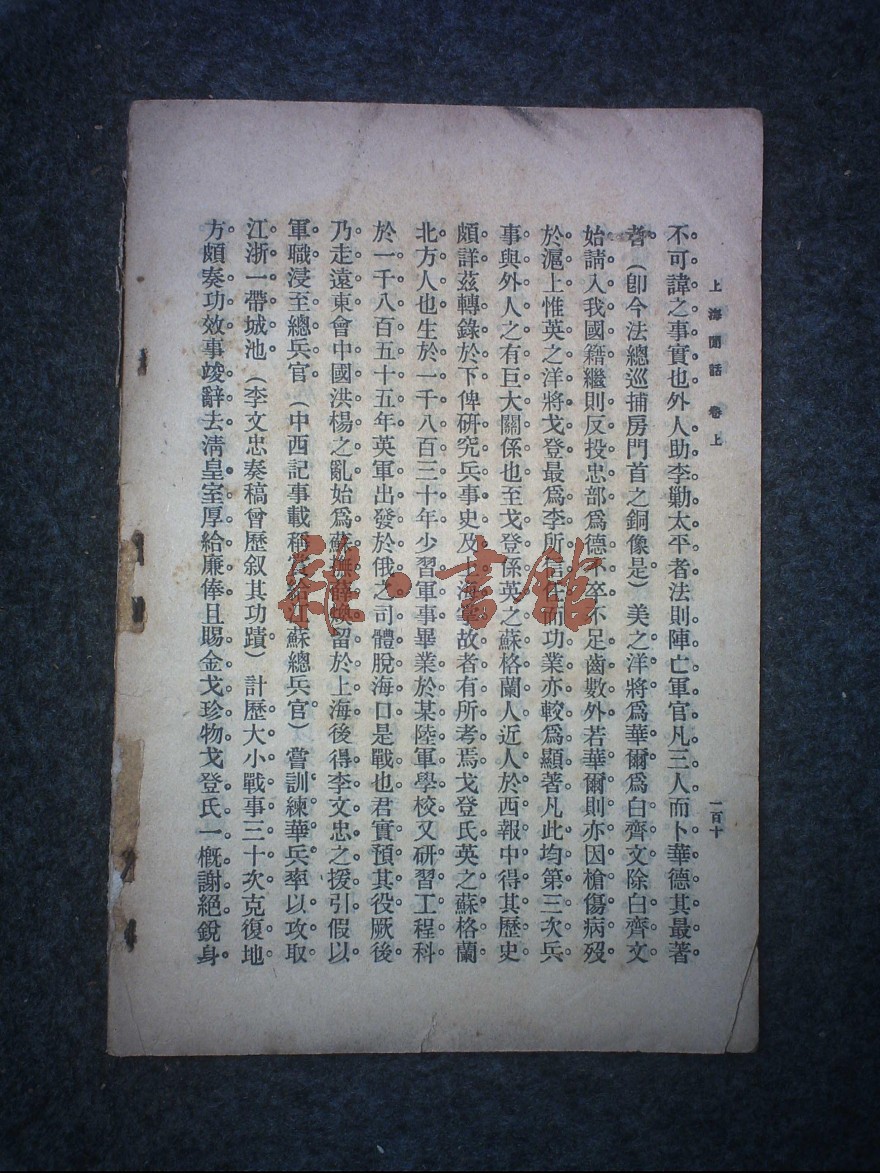 上海閒話 卷上
一百十
不可諱之事實也外人助李勦太平者法則陣亡軍官凡三人而卜華德其最著
者（卽今法總巡捕房門首之銅像是）美之洋將爲華爾爲白齊文除白齊文
始請入我國籍繼則反投忠部爲德不卒不足齒數外若華爾則亦因槍傷病歿
於滬上惟英之洋將戈登最爲李所信任而功業亦較爲顯著凡此均第三次兵
事與外人之有巨大關係也至戈登係英之蘇格蘭人近人於西報中得其歷史
頗詳茲轉錄於下俾研究兵事史及上海掌故者有所考焉戈登氏英之蘇格蘭
北方人也生於一千八百三十年少習軍事畢業於某陸軍學校又研習工程科
於一千八百五十五年英軍出發於俄之司體脫海口是戰也君實預其役厥後
乃走遠東會中國洪楊之亂始爲蘇撫薛煥留於上海後得李文忠之援引假以
軍職浸至總兵官（中西記事載稱賞給江蘇總兵官）嘗訓練華兵率以攻取
江浙一帶城池（李文忠奏稿曾歷叙其功蹟）計歷大小戰事三十次克復地
方頗奏功效事竣辭去淸皇室厚給廉俸且賜金戈珍物戈登氏一槪謝絕銳身
雜·書館